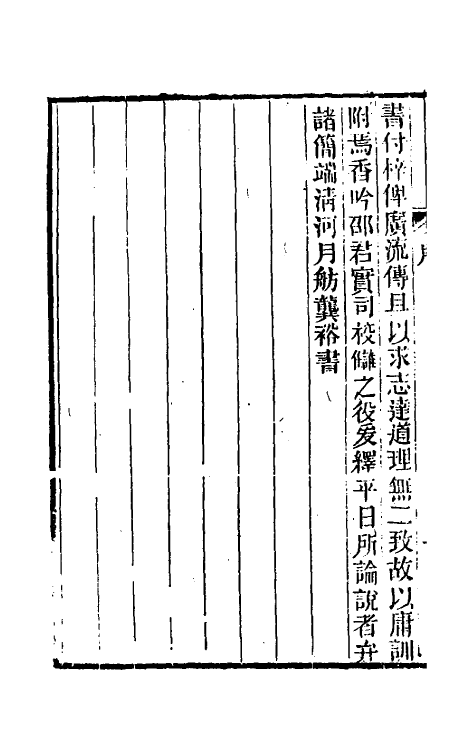 書付梓俾廣流傳且以求志達道理無二致故以庸訓
附焉香吟邵君實司校讎之役爰繹平日所論說者弁
諸簡端淸河月舫龔裕書